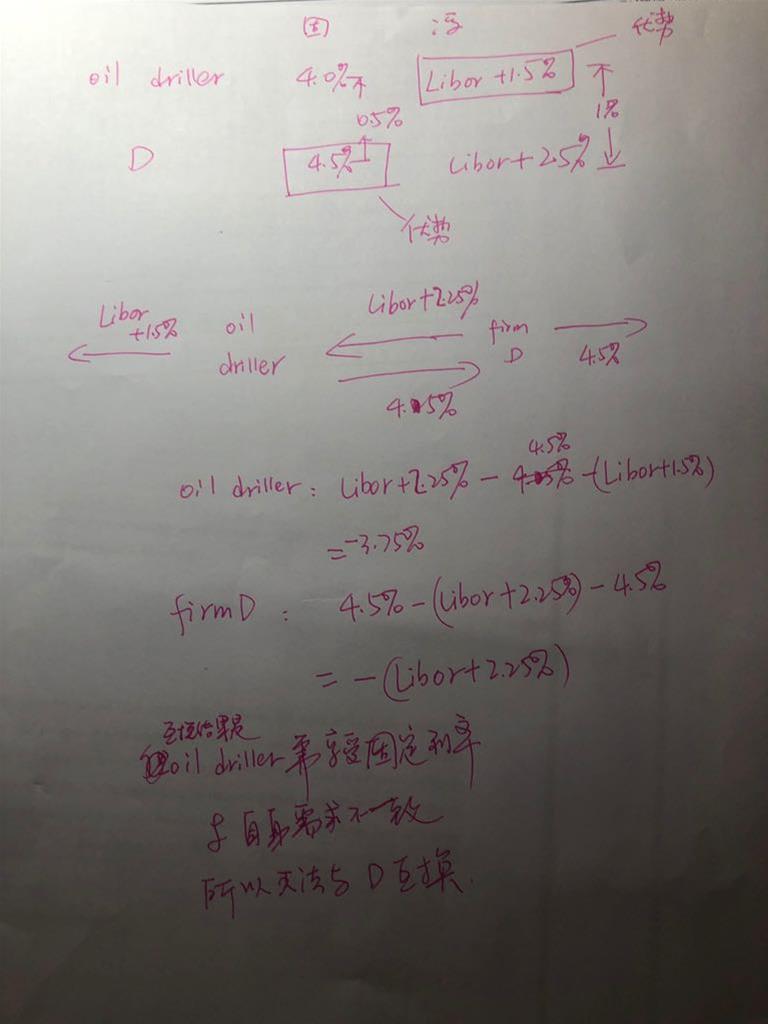 固 浮 优势
oil driller 4.0% Libor+1.5%
0.5% 1%
D 4.5% Libor+2.5%
优势
Libor+1.5% oil driller Libor+2.25% firm D 4.5%
4.5%
4.5%
oil driller: Libor+2.25% - -(Libor+1.5%)
=-3.75%
firm D: 4.5%-(Libor+2.25%)-4.5%
= -(Libor+2.25%)
互换结果是
oil driller 享受固定利率
与自身需求不一致
所以无法与D互换.